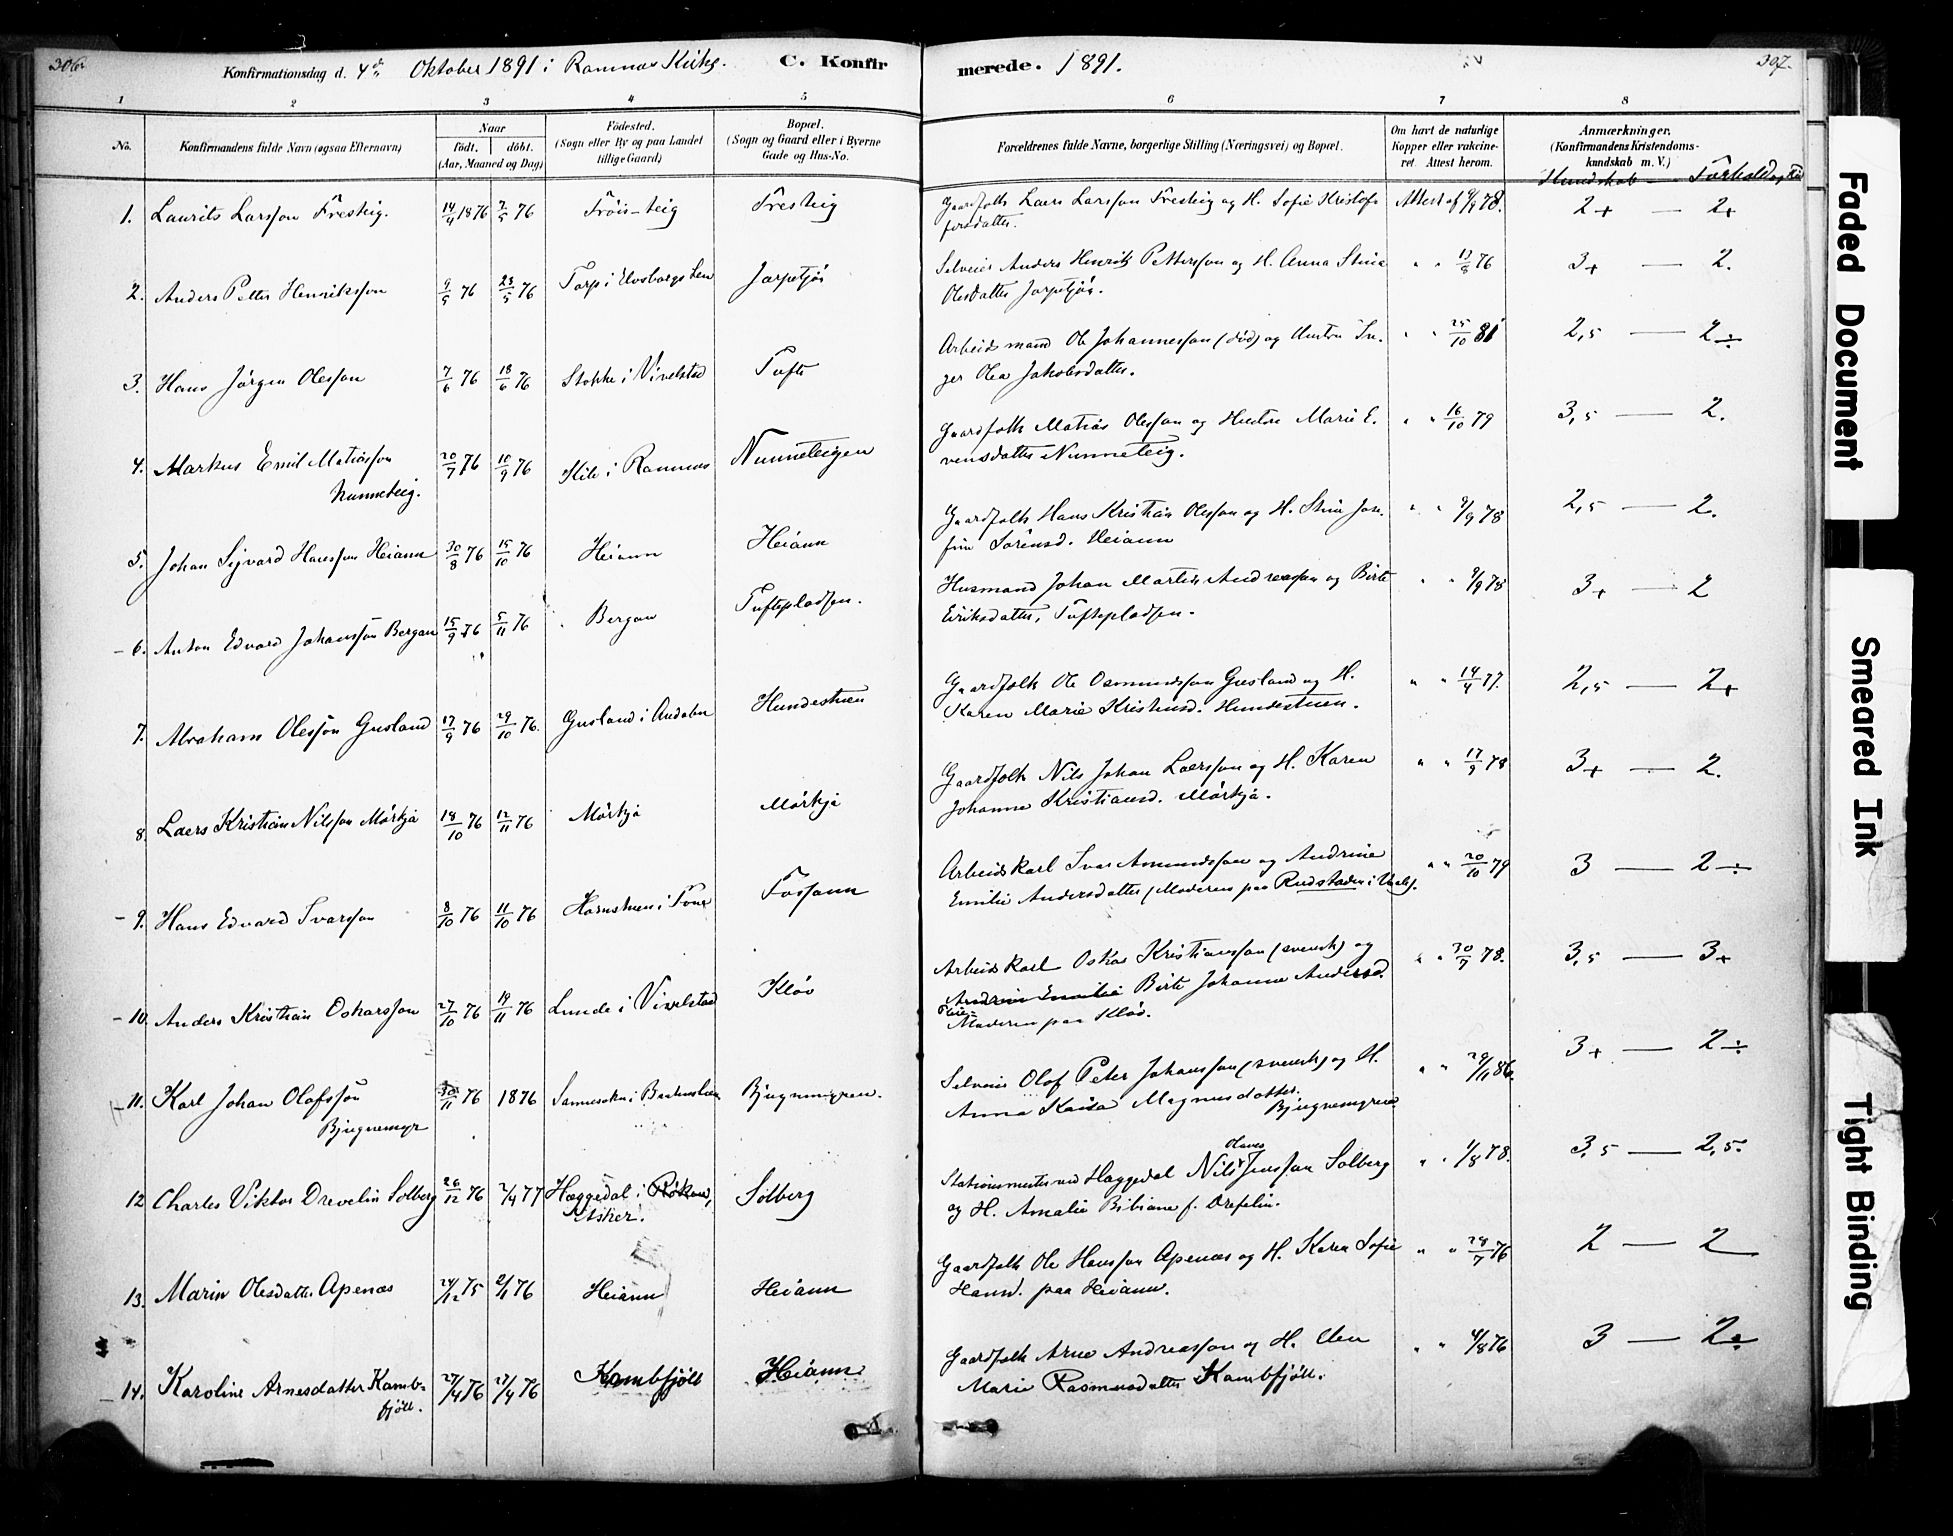 306.
Konfirmationsdag d. 4de Oktober 1891 i Ramnæs Kirke. C. Konfir
merede. 1891.
307.
1 2 3 4 5
6 7 8
No.
Konfirmandens fulde Navn (ogsaa Efternavn)
Naar
födt. döbt.
(Aar, Maaned og Dag)
Födested.
(Sogn eller By og paa Landet
tillige Gaard)
Bopæl.
(Sogn og Gaard eller i Byerne
Gade og Hus-No.
Forældrenes fulde Navne, borgerlige Stilling (Næringsvei) og Bopæl.
Om havt de naturlige
Kopper eller vakcine-
ret. Attest herom.
Anmærkninger.
(Konfirmandens Kristendoms-
kundskab m. V.)
Kundskab — Forhold og Flid
1. Laurits Larsson Fresteig. 14/4 1876 7/5 76 Fröis-teig Fresteig
Gaardfolk Laers Larsson Fresteig og H. Sofie Kristof-
fersdatter. Attest af 9/9 78. 2+ — 2+
2. Anders Petter Henriksson 9/5 76 23/5 76 Torp i Elvsborgs Len Jarpetjön
Selveier Anders Henrik Pettersson og H. Anna Stina
Olesdatter Jarpetjön. " " 13/8 76 3+ — 2.
3. Hans Jörgen Olesson 7/6 76 18/6 76 Stokke i Vivelstad Tufte
Arbeidsmand Ole Johannesson (död) og Hustru In-
ger Olea Jakobsdatter. " " 25/10 81 2,5 — 2÷
4. Markus Emil Matiasson
Nunneteig. 20/7 76 10/9 76 Kile i Ramnæs Nunneteigen
Gaardfolk Matias Olesson og Hustru Marie E-
vensdatter Nunneteig. " " 16/10 79 3,5 — 2.
5. Johan Sigvard Hansson Heiann 30/8 76 15/10 76 Heiann Heiann
Gaardfolk Hans Kristian Olesson og H. Stine Jose-
fine Sörensd. Heiann " " 9/9 78 2,5 — 2.
6. Anton Edvard Johansson Bergan 15/9 76 5/11 76 Bergan Tuftepladsen.
Husmand Johan Martin Andreassen og Birte
Eriksdatter, Tuftepladsen. " " 9/9 78 3+ — 2
7. Abraham Olesson Gusland 17/9 76 29/10 76. Gusland i Andebu Hundestuen
Gaardfolk Ole Osmundsson Gusland og H.
Karen Marie Kristensd. Hundestuen. " " 14/4 77. 2,5 — 2+
8. Laers Kristian Nilsson Mörkjä 18/10 76 12/11 76 Mörkjä Mörkjä
Gaardfolk Nils Johan Laersson og H. Karen
Johanne Kristiansd. Mörkjä. " " 17/9 78 3+ — 2.
9. Hans Edvard Ivarsson 8/10 76 11/10 76 Fossann
Arbeidskarl Ivar Amundsson og Andrine
Emilie Andersdatter (Moderen paa Rudstaden i Vaale). " " 20/10 79 3 — 2÷
10. Anders Kristian Oskarsson 27/10 76 19/11 76 Lunde i Vivelstad Klöv
Arbeidskarl Oskar Kristiansson (svensk) og
Andrine Emilie Birte Johanne Andersd.
Moderen paa Klöv. " " 30/7 78. 3,5 — 3+
11. Karl Johan Olafsson
Bjugnemyr 30/11 76 1876 Bjugnemyren.
Selveier Olof Peter Johansson (svensk) og H.
Anna Kaisa Magnusdotter.
Bjugnemyren " " 29/11 86. 3+ — 2÷
12 Charles Viktor Drevelin Solberg 26/12 76 2/4 77 Hæggedal i Röken,
Asker. Solberg
Stationsmester ved Hæggedal Nils Olaves Jensson Solberg
og H. Amalie Bibiane f. Drefelin. " " 1/8 78. 3,5 — 2,5
13. Marin Olesdatter Apenæs 24/12 75 2/1 76 Heiann Heiann
Gaardfolk Ole Hansson Apenæs og H. Karen Sofie
Hansd. paa Heiann. " " 28/7 76 2 — 2
14. Karoline Arnesdatter Kamb-
fjöll. 27/4 76 27/4 76 Kambfjöll Heiann
Gaardfolk Arne Andreasson og H. Elen
Marie Rasmusdatter Kambfjöll. " " 4/8 76 3 — 2÷
Faded Document
Smeared Ink
Tight Binding